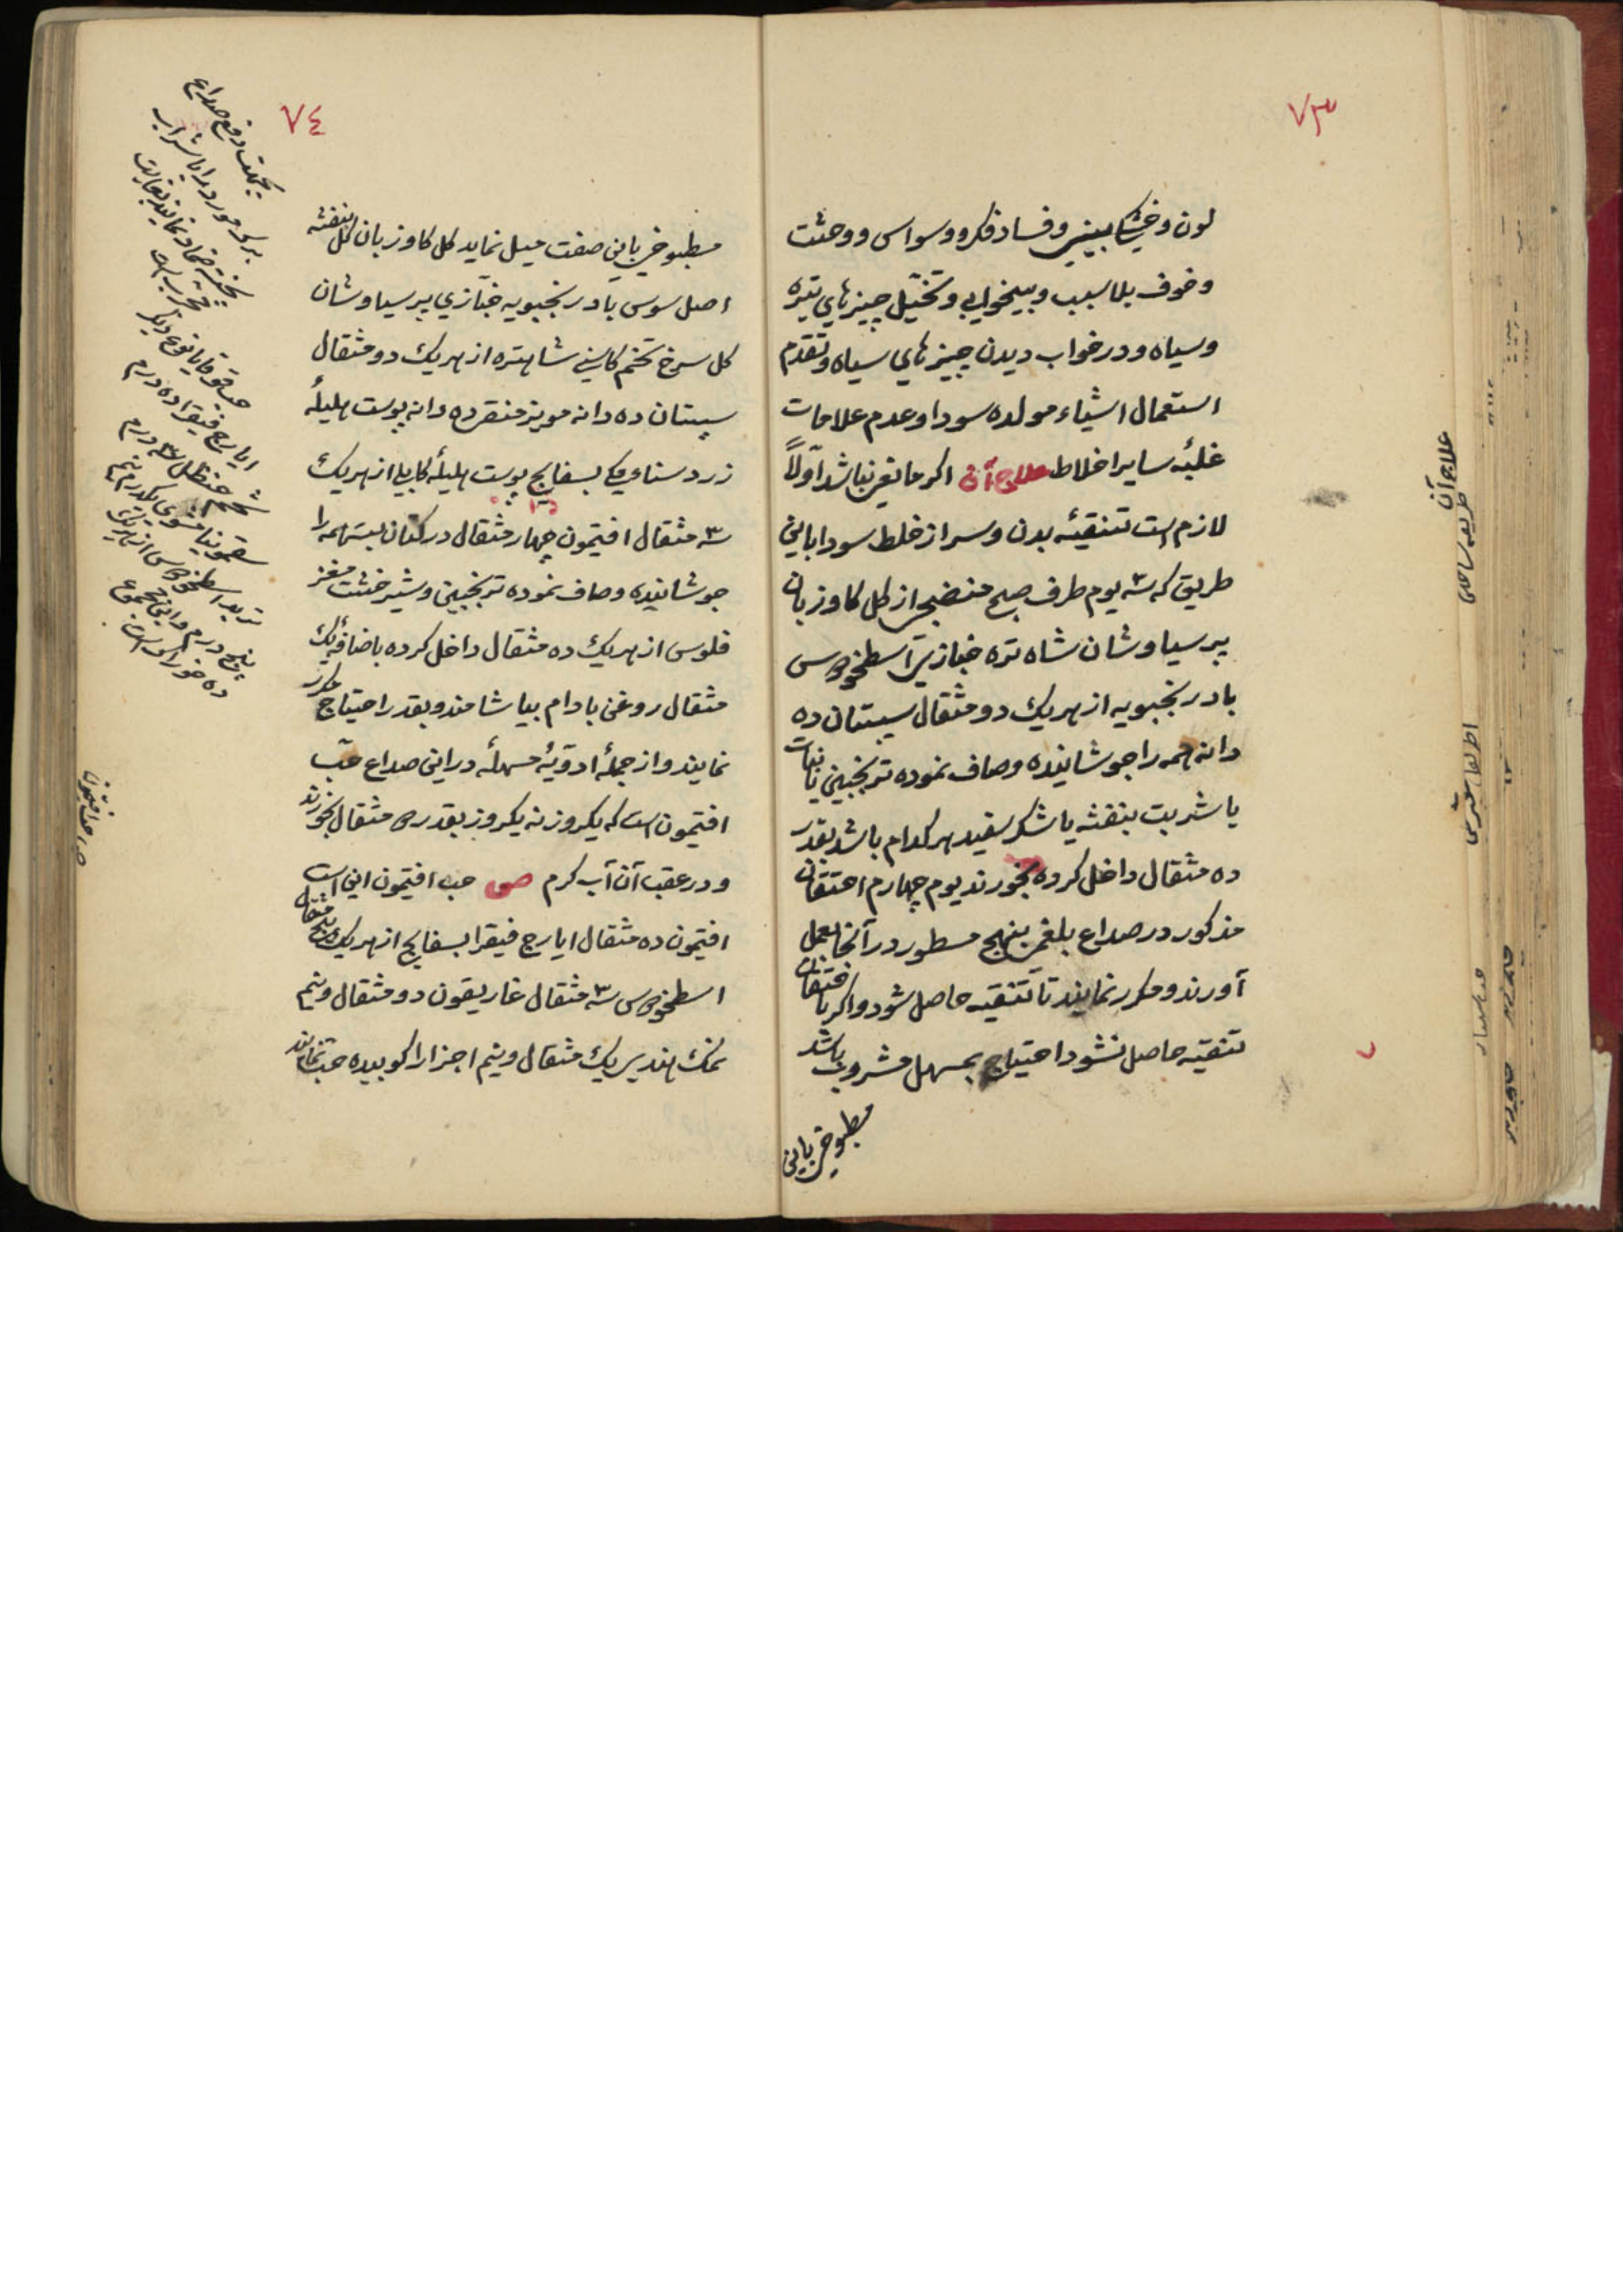 ٧٣
لون و خشکی بینی و فساد فکر و وسواس و وحشت
و خوف بلا سبب و بیخوابی و تخیّل چیزهای تیره
و سیاه و در خواب دیدن چیزهای سیاه و تقدم
استعمال اشیاء مولده سودا و عدم علامات
غلبهٔ سایر اخلاط علاج آن اکر مانعی نباشد اولاً
لازم است تنقیهٔ بدن و سر از خلط سودا باین
طریق که سه یوم طرف صبح منضجی از کل کاوزبان
پرسیاوشان شاه تره خبازی اسطخودوس
بادرنجبویه از هریک دو مثقال سپستان ده
دانه همه را جوشانیده و صاف نموده ترنجبین یا نبات
یا شربت بنفشه یا شکر سفید هر کدام باشد بقدر
ده مثقال داخل کرده بخورند یوم چهارم احتقان
مذکور در صداع بلغمی بنهج مسطور در آنجا بعمل
آورند و مکرر نمایند تا تنقیه حاصل شود و اکر با حتقان
تنقیه حاصل نشود احتیاج بمسهل مشروب باشد
مطبوخی باین
٧٤
مطبوخی باین صفت میل نماید کل کاوزبان کل بنفشه
اصل سوس بادرنجبویه خبازی پرسیاوشان
کل سرخ تخم کاسنی شاهتره از هریک دو مثقال
سپستان ده دانه مویز منقی ده دانه پوست هلیلهٔ
زرد سناء مکی بسفایج پوست هلیلهٔ کابلی از هریک
سه مثقال افتیمون چهار مثقال در کتان بسته همه را
جوشانیده و صاف نموده ترنجبین و شیرخشت مغز
فلوس از هریک ده مثقال داخل کرده باضافهٔ یک
مثقال روغن بادام بیاشامند و بقدر احتیاج مکرر
نمایند و از جملهٔ ادویهٔ مسهلهٔ در این صداع حبّ
افتیمون است که یکروز نه یکروز بقدر مثقال بخورند
و در عقب آن آب کرم ص حب افتیمون این است
افتیمون ده مثقال ایارج فیقرا بسفایج از هریک پنج مثقال
اسطخودوس سه مثقال غاریقون دو مثقال و نیم
نمک هندی یک مثقال و نیم اجزا را کوبیده حب نمایند
بجهت دفع صداع
برک مورد را با شراب
پخته ضماد نمایند
مجرب است
ایارج فیقرا ده درم
شحم حنظل سه درم
سقمونیا مشوی
تربد اسطخودوس از هریک
پنج درم و این مجموع
ده خوراک است
علاج آن